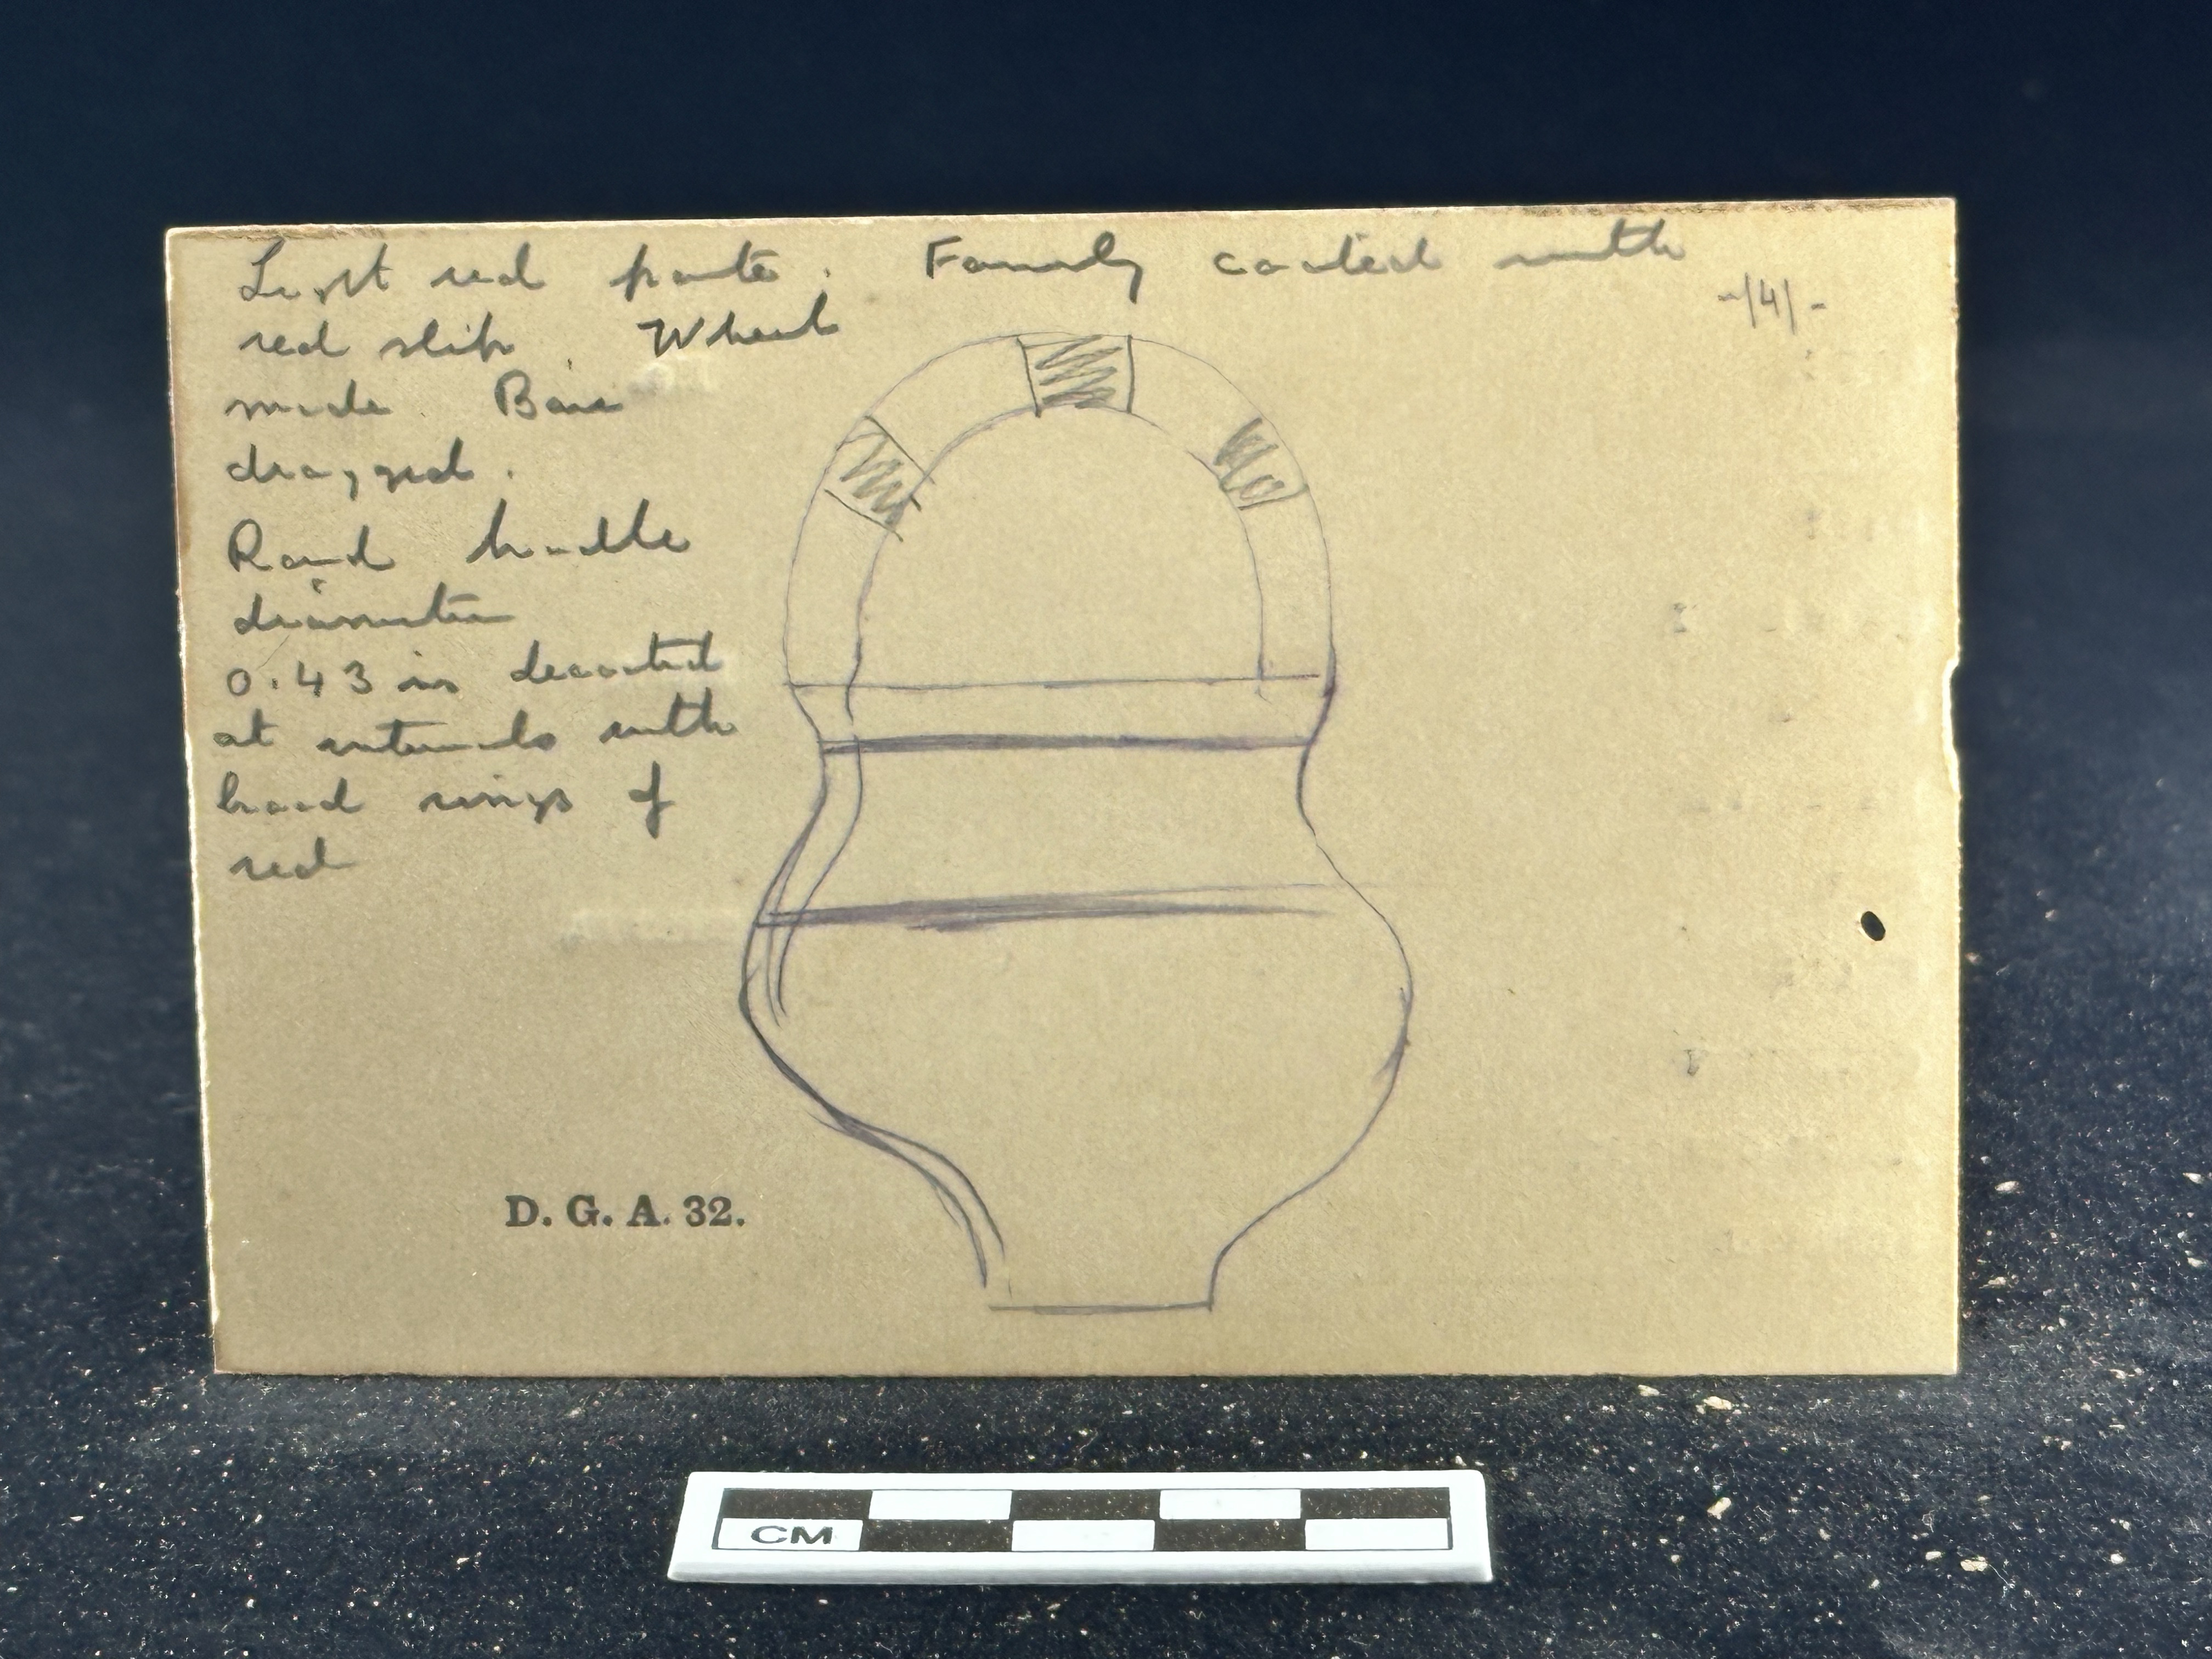 Light red paste. Formerly coated with
red slip. Wheel
-/4/-
made. Base
dragged.
Round handle
diameter
0.43 in decorated
at intervals with
broad rings of
red
D. G. A. 32.
CM